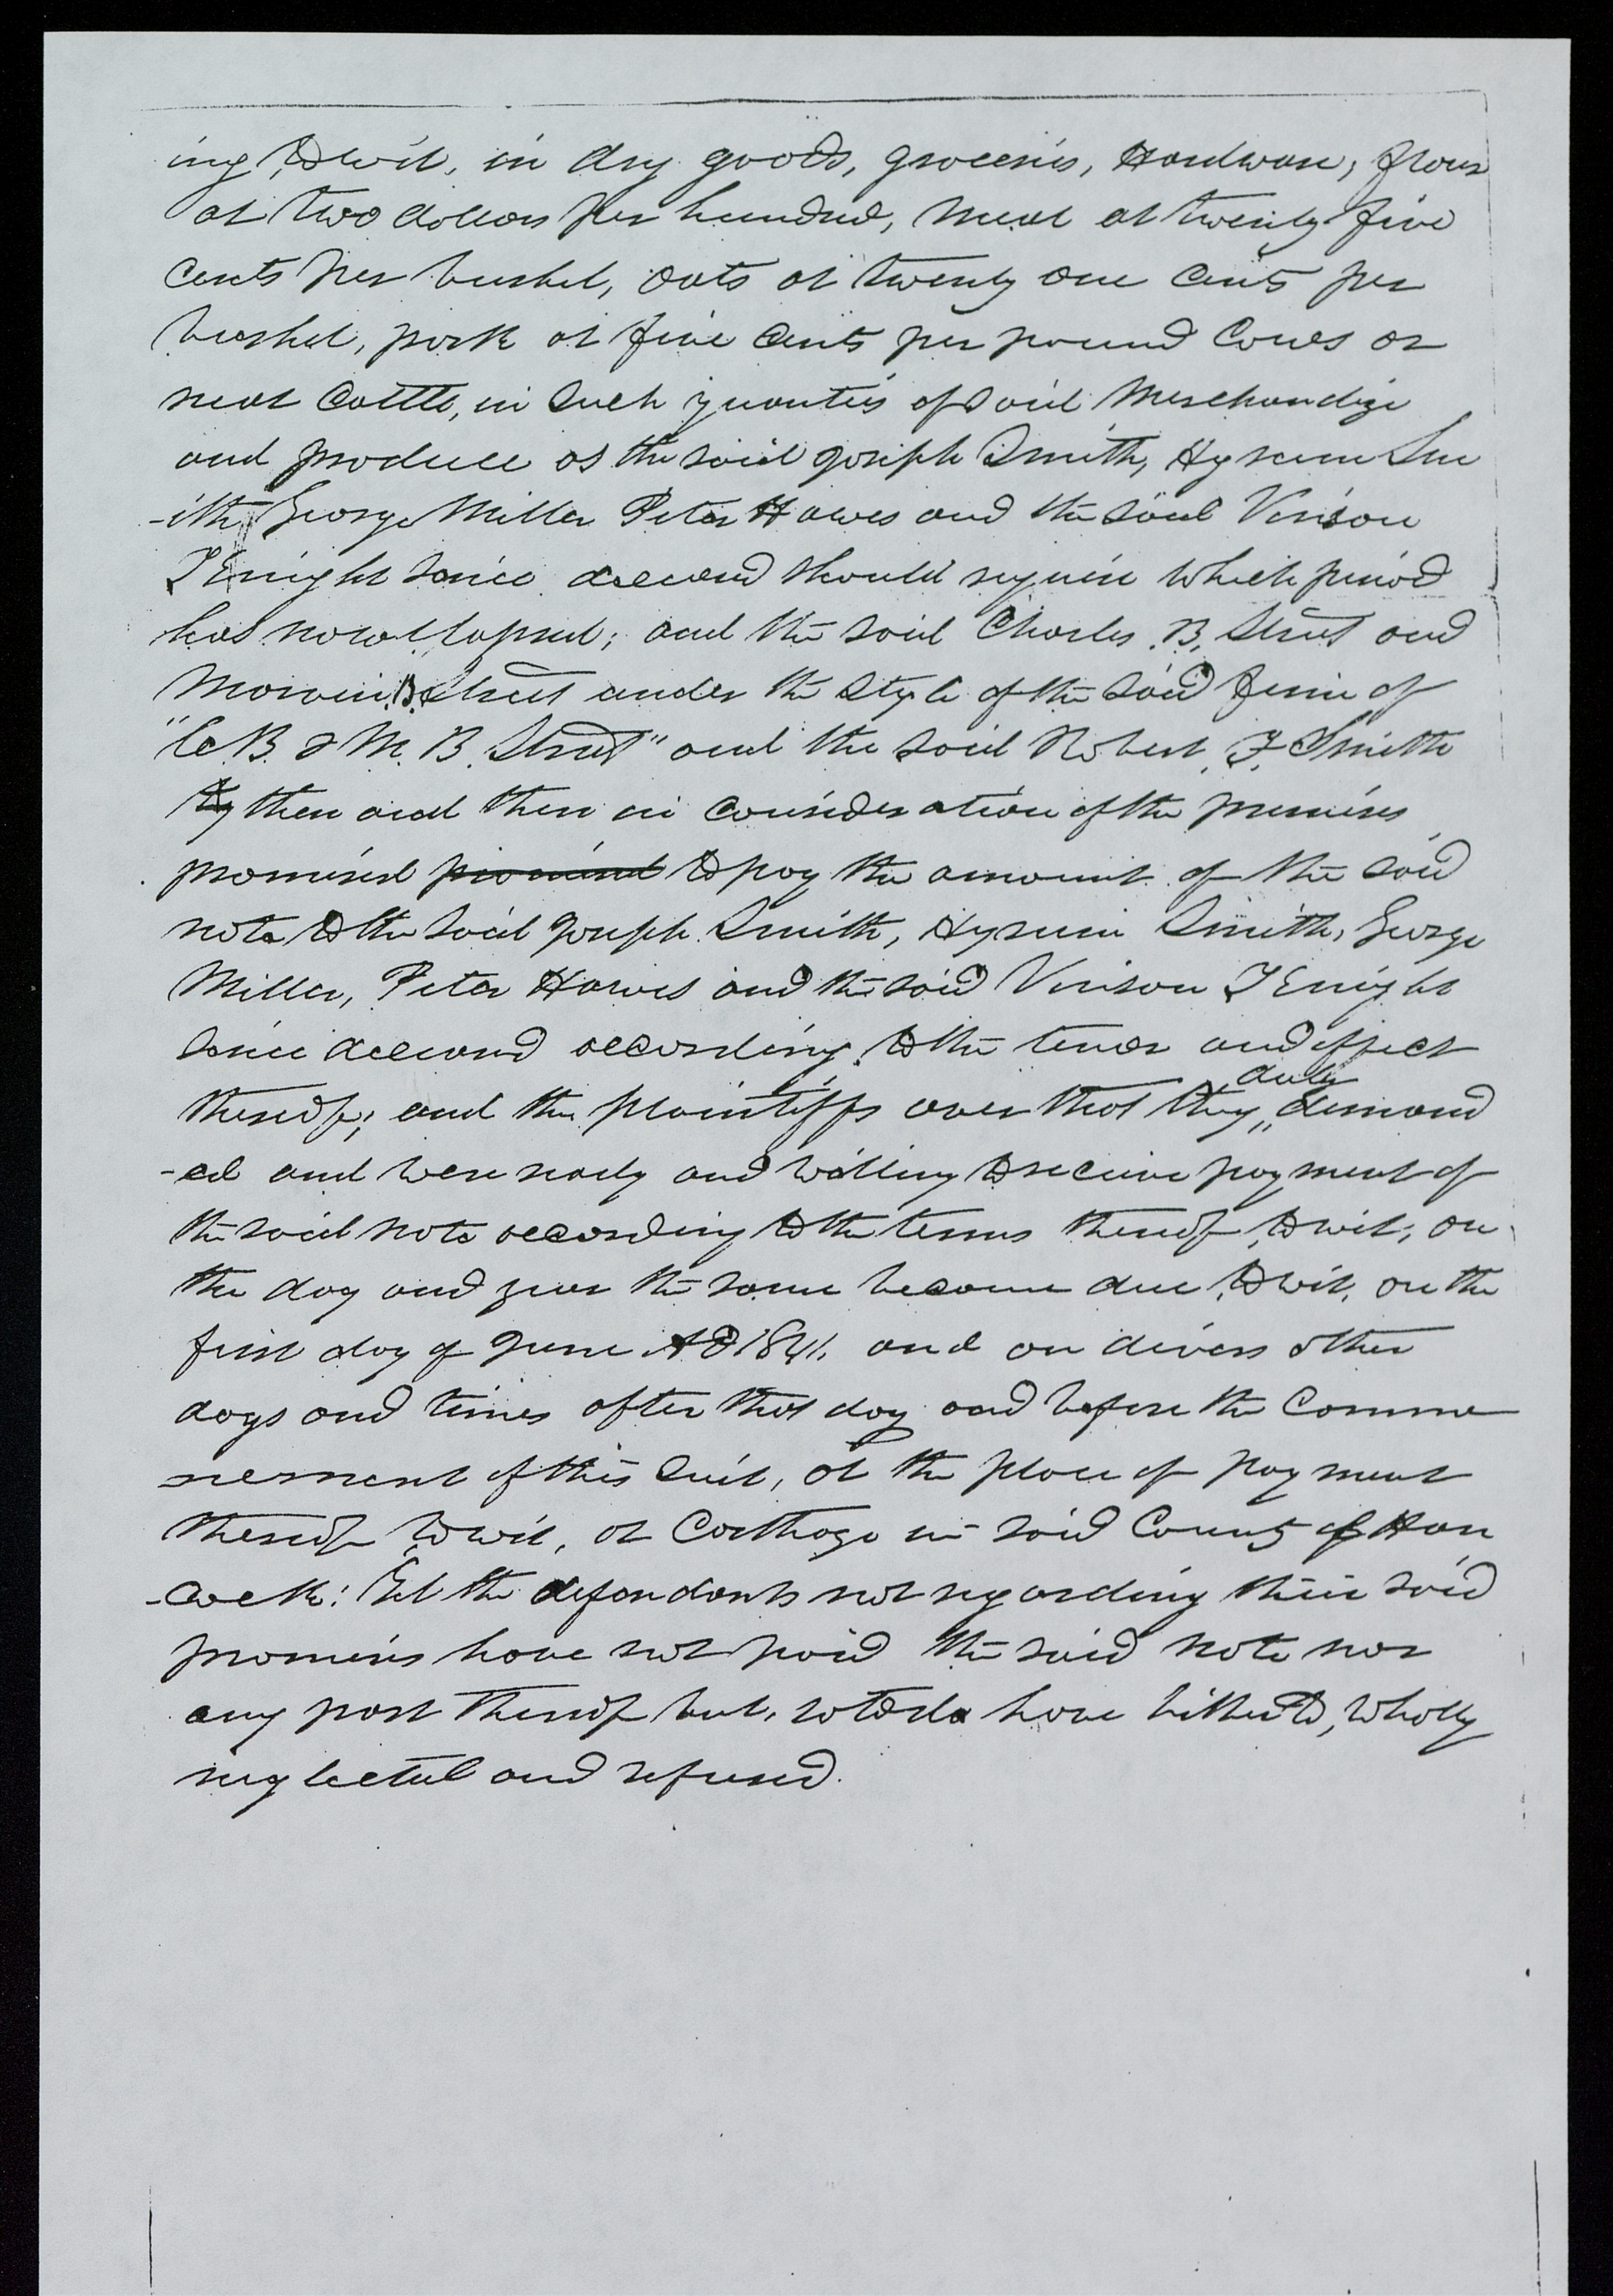 ing, to wit, in dry goods, groceries, Hardware, flour
at two dollars per hundred, meal at twenty-five
cents per bushel, oats at twenty one cents per
bushel, pork at five cents per pound Cows or
neat Cattle, in such quanties of said Merchandize
and produce as the said Joseph Smith, Hyrum Sm
-ith, George Miller Peter Hawes and the said Vinson
Knight since deceased should require which period
has now elapsed; and the said Charles B. Street and
Marvin B. Street under the style of the said firm of
"C B. & M. B. Street" and the said Robert F. Smith
then and there in consideration of the premises
promised promised to pay the amount of the said
note to the said Joseph Smith, Hyrum Smith, George
Miller, Peter Hawes and the said Vinson Knight
since deceased according to the tenor and effect
thereof; and the plaintiffs aver that they duly demand
-ed and were ready and willing to receive payment of
the said note according to the terms thereof, to wit, on
the day and year the same became due, to wit, on the
first day of June AD 1841. and on divers other
days and times after that day and before the Comme
ncement of this suit, at the place of payment
thereof to wit, at Carthage in said County of Han
-cock: Yet the defendants not regarding their said
promises have not paid the said note nor
any part thereof but, so to do have hitherto, wholly
neglected and refused.